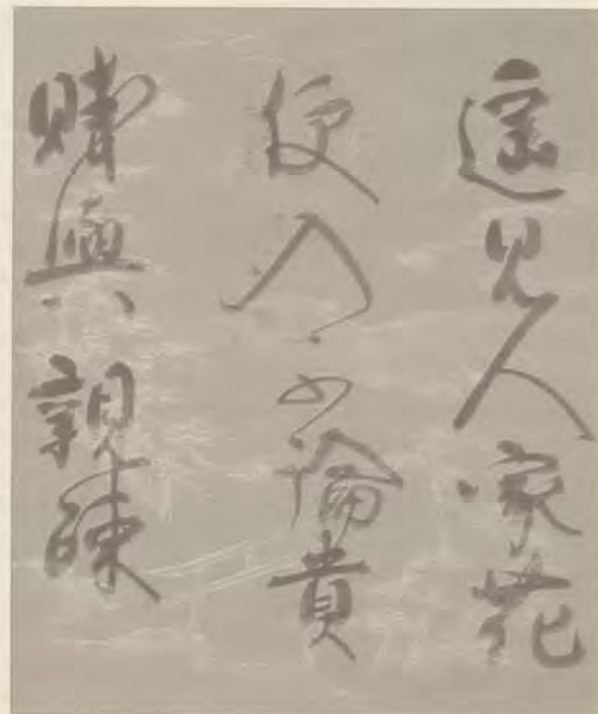 遥見人家花
便入不論貴
賤與親疎